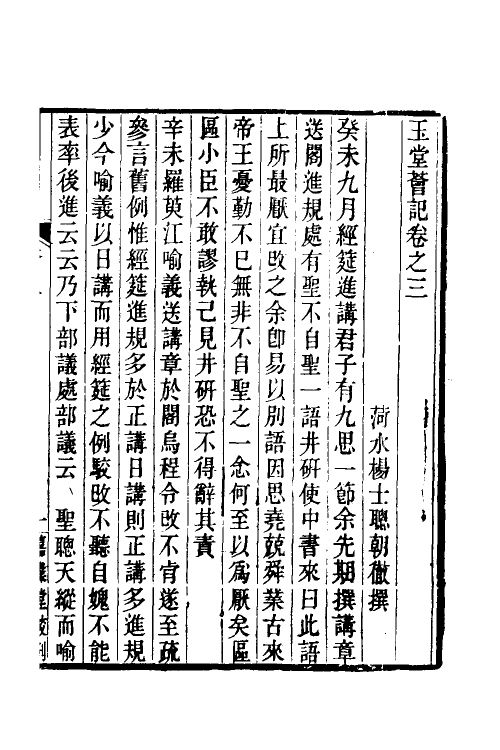 玉堂薈記卷之三
菏水楊士聰朝徹撰
癸未九月經筵進講君子有九思一節余先期撰講章
送閣進規處有聖不自聖一語井研使中書來曰此語
上所最厭宜改之余卽易以別語因思堯兢舜業古來
帝王憂勤不已無非不自聖之一念何至以爲厭矣區
區小臣不敢謬執己見井研恐不得辭其責
辛未羅萸江喻義送講章於閣烏程令改不肯遂至疏
參言舊例惟經筵進規多於正講日講則正講多進規
少今喻義以日講而用經筵之例駁改不聽自媿不能
表率後進云云乃下部議處部議云、聖聰天縱而喻